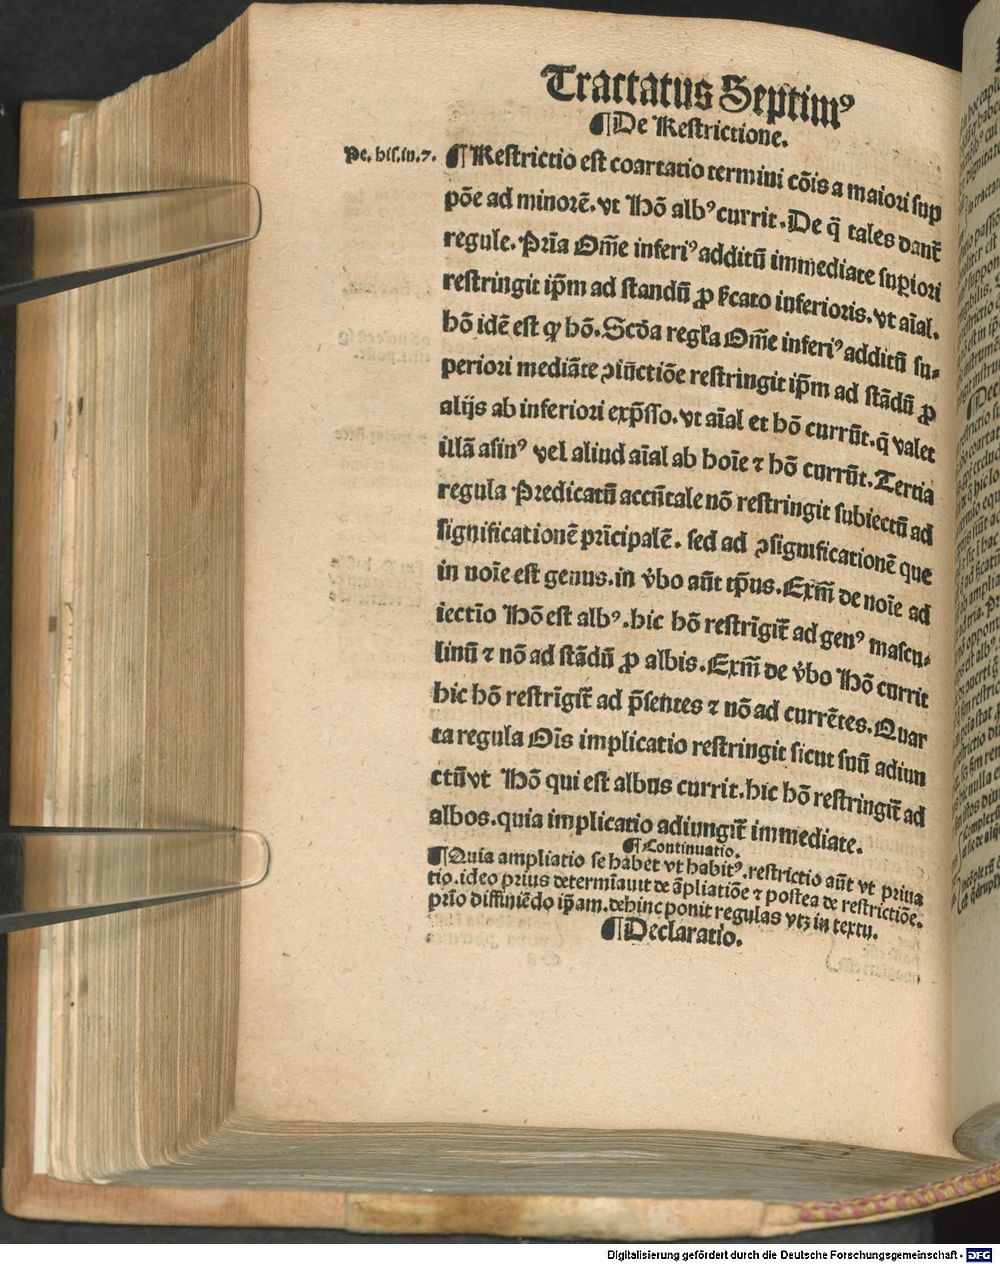 Tractatus Septimꝰ
¶De Restrictione.
Pe. his. in. 7.
¶Restrictio est coartatio termini cõis a maiori sup
põe ad minorẽ. vt Hõ albꝰ currit. De q̃ tales danť
regule. Prĩa Om̃e inferiꝰ additũ immediate supiori
restringit ip̃m ad standũ ꝓ sĩcato inferioris. vt aĩal.
hõ idẽ est qꝫ hõ. Scďa regľa Om̃e inferiꝰ additũ su⸗
periori mediãte ꝯiũctiõe restringit ip̃m ad stãdũ ꝓ
alijs ab inferiori exp̃sso. vt aĩal et hõ currũt. q̃ valet
illã asinꝰ vel aliud aĩal ab hoĩe ⁊ hõ currũt. Tertia
regula Predicatũ accñtale nõ restringit subiectũ ad
significationẽ prĩcipalẽ. sed ad ꝯsignificationẽ que
in noĩe est genus. in v̾bo aũt tp̃us. Exm̃ de noĩe ad
iectĩo Hõ est albꝰ. hic hõ restrĩgiť ad genꝰ mascu⸗
linũ ⁊ nõ ad stãdũ ꝓ albis. Exm̃ de v̾bo Hõ currit
hic hõ restrĩgiť ad p̃sentes ⁊ nõ ad currẽtes. Quar
ta regula Oĩs implicatio restringit sicut suũ adiun
ctũ vt Hõ qui est albus currit. hic hõ restringiť ad
albos. quia implicatio adiungiť immediate.
¶Continuatio.
¶Quia ampliatio se habet vt habitꝰ. restrictio aũt vt priua
tio. ideo prius determĩauit de ãpliatiõe ⁊ postea de restrictiõe.
prĩo diffiniẽdo ip̃am. dehinc ponit regulas vtꝫ in textu.
¶Declaratio.
Digitalisierung gefördert durch die Deutsche Forschungsgemeinschaft - DFG